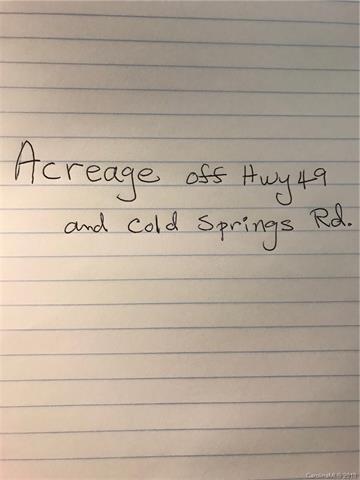 Acreage off Hwy 49
and Cold Springs Rd.
CarolinaMLS 2018